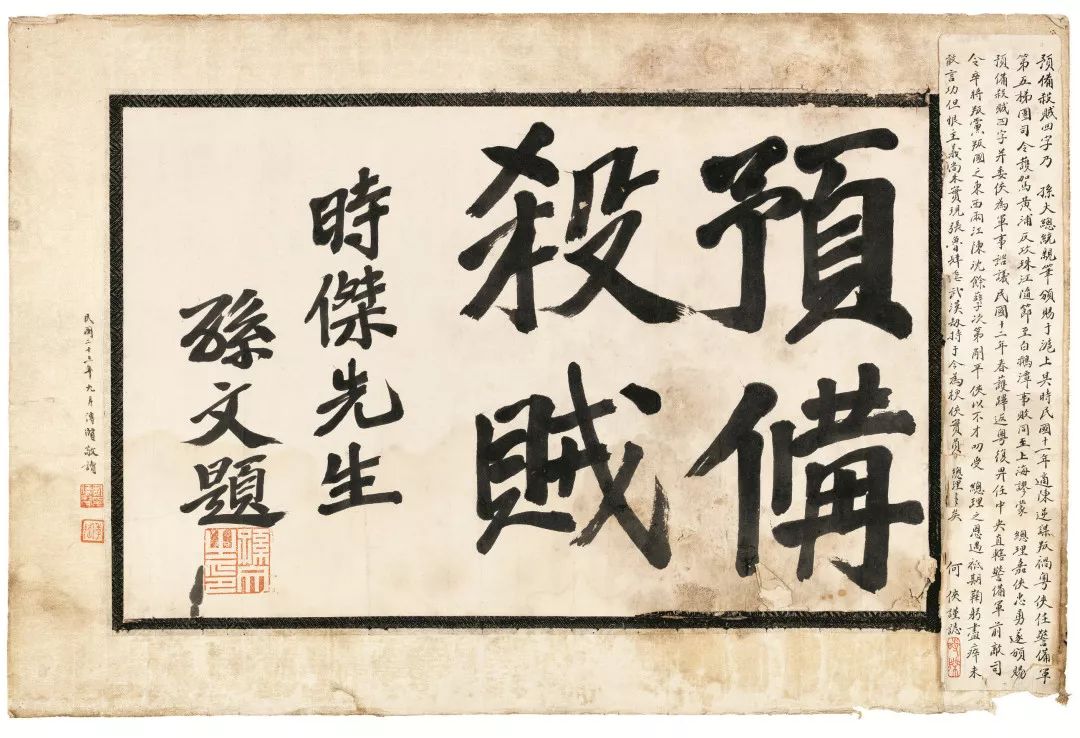 預備
殺賊
時傑先生
孫文題
孫文之印
預備殺賊四字乃　孫大總統親筆頒賜于滬上其時民國十一年適陳逆謀叛禍粵俠任警備軍
第五梯團司令護駕黃浦反攻珠江隨節至白鵝潭事敗同至上海謬蒙　總理嘉俠忠勇遂頒賜
預備殺賊四字并委俠為軍事諮議民國十二年春護蹕返粵復畀任中央直轄警備軍前敵司
令卒將叛黨叛國之東西兩江陳沈餘孽次第剷平俠以不才叨受　總理之恩遇祗期鞠躬盡瘁未
敢言功但恨主義尚未實現張魯肆惡武漢劫持于今為梗俠實負　總理多矣　何俠謹誌
民國二十三年九月　敬讀